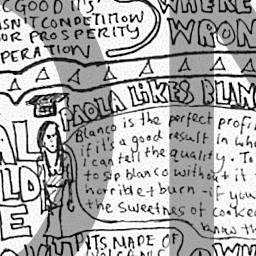 GOOD it's
WHERE
ISN'T COMPETITION
OR PROSPERITY
WRON
PERATION
PAOLA LIKES BLAN
Blanco is the perfect profi
if it's a good result in wh
AL
i can tell the quality. To
to sip blanco without it
LD
horrible + burn - if you
the sweetness of cooked
E
know th
IT'S MADE OF
VOLCANIC
OWN